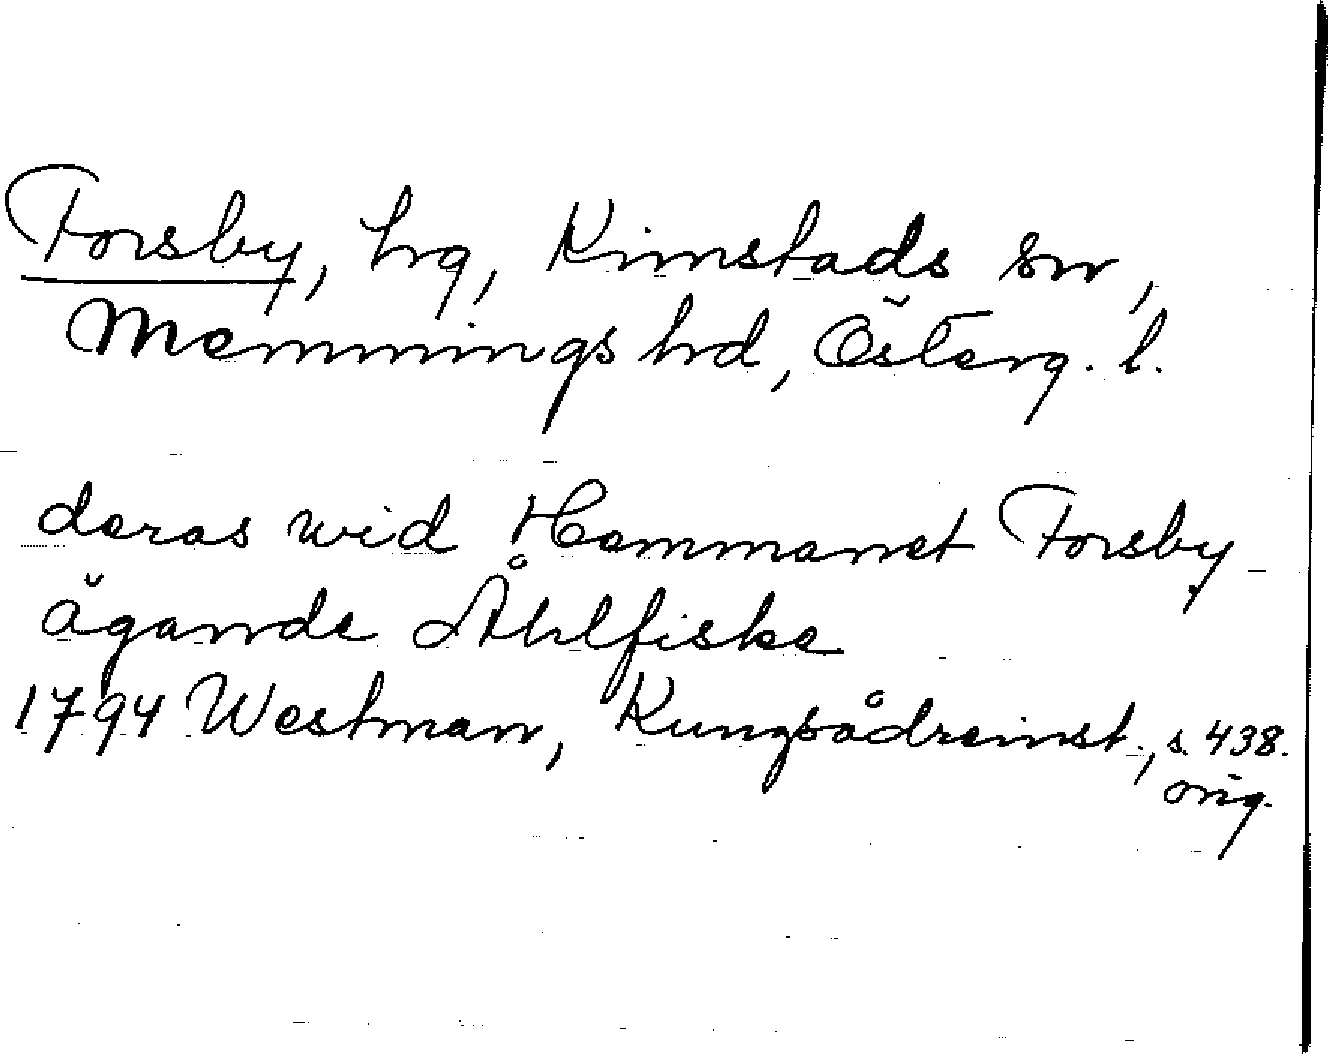 Forsby, hg, Kimstads sn,
Memmings hd, Österg. l.
deras wid Hemmanet Forsby
ägande Åhlfiske
1794 Westman, Kungsådreinst., s. 438.
orig.